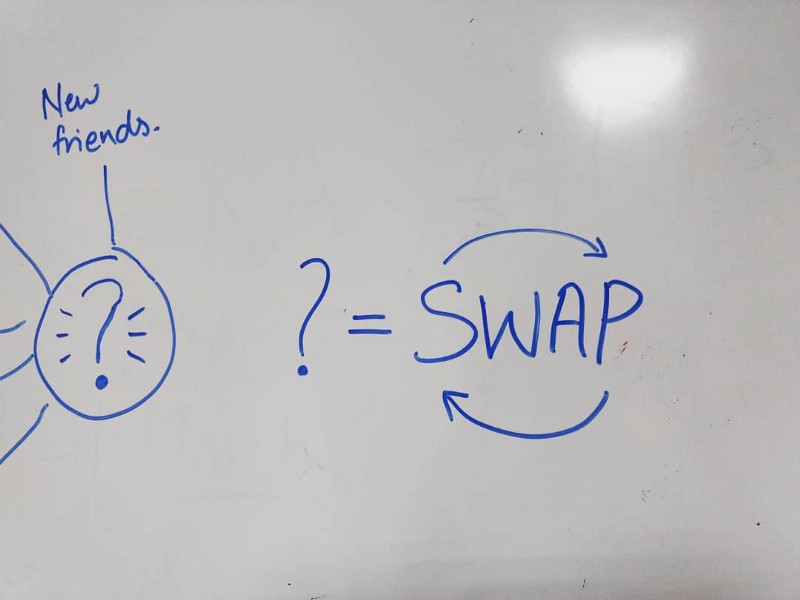 New
friends.
?
? = SWAP